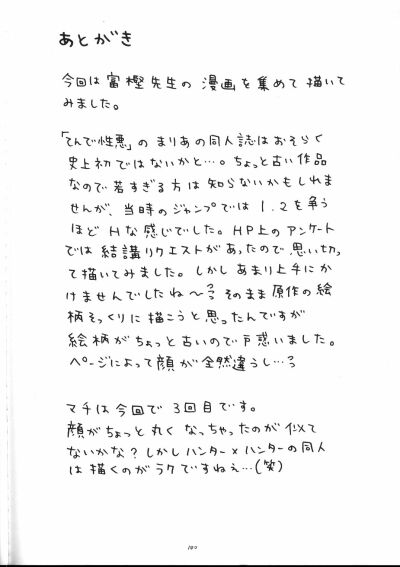 あとがき
今回は富樫先生の漫画を集めて描いて
みました。
「てんで性悪」のまりあの同人誌はおそらく
史上初ではないかと…。ちょっと古い作品
なので若すぎる方は知らないかもしれま
せんが、当時のジャンプでは1.2を争う
ほどHな感じでした。HP上のアンケート
では結講リクエストがあったので思い切っ
て描いてみました。しかしあまり上手にか
けませんでしたね〜 そのまま原作の絵
柄そっくりに描こうと思ったんですが
絵柄がちょっと古いので戸惑いました。
ページによって顔が全然違うし…
マチは今回で3回目です。
顔がちょっと丸くなっちゃったのが似て
ないかな？しかしハンター×ハンターの同人
は描くのがラクですねぇ…(笑)